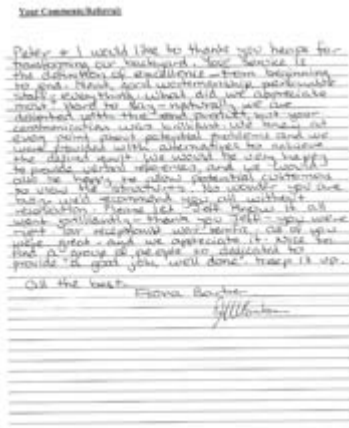 Your Comments/Referral:
Peter & I would like to thank you heaps for
transforming our backyard. Your service is
the definition of excellence - from beginning
to end. Neat, good workmanship, personable
staff, everything. What did we appreciate
most? Hard to say - naturally we are
delighted with the end product, but your
communication was brilliant. We knew at
every point about potential problems and we
were provided with alternatives to achieve
the desired result. We would be very happy
to provide verbal references, and we would
also be happy to allow potential customers
to view the structures. No wonder you are
busy. We'd recommend you all without
reservation. Please let Jeff know it all
went brilliantly - thank you Jeff - you were
great. Your receptionist was terrific, all of you
were great - and we appreciate it. Nice to
find a group of people so dedicated to
provide "a good job, well done". Keep it up.
All the best.
Fiona